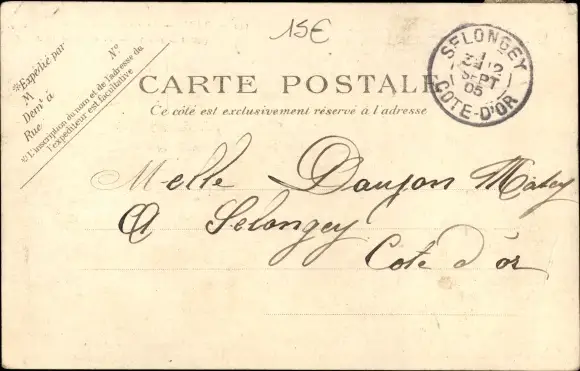 15€
SELONGEY
12
SEPT
05
CÔTE-D'OR
*Expédié par
M N°
Demt à
Rue
L'inscription du nom et de l'adresse de
l'expéditeur est facultative
CARTE POSTALE
Ce côté est exclusivement réservé à l'adresse
Melle Daujon
A Selongey
Cote d'or